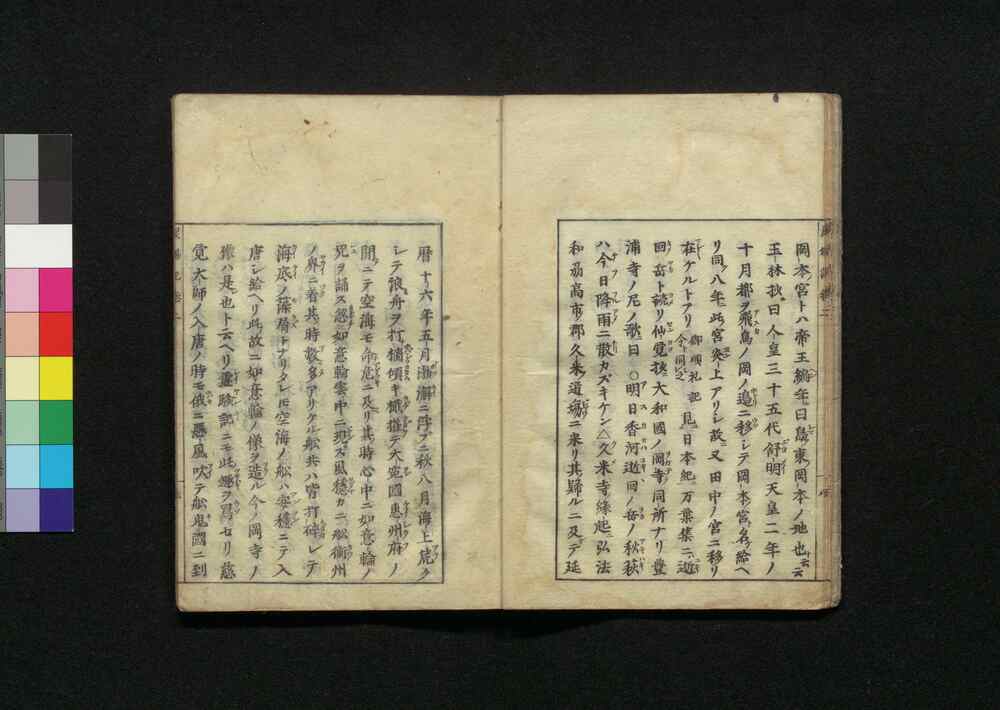 岡本宮トハ帝王編年曰島東岡本ノ地也云云
玉林抄曰人皇三十五代舒明天皇二年ノ
十月都ヲ飛鳥ノ岡ノ邉ニ移シテ岡本宮ト名給ヘ
リ同八年此宮炎上アリシ故ニ又田中ノ宮ニ移リ
在ケルトアリ御順礼記ニ見日本紀万葉集ニ逝
今ト同シ之
回岳ト訓リ仙覚抄大和國ノ岡寺同所ナリ豊
浦寺ノ尼ノ歌曰○明日香河逝回ノ岳ノ秋萩
ハ今日降雨ニ散カスギケン△久米寺縁起弘法
和刕高市郡久米道場ニ来リ其歸ルニ及デ延
暦十六年五月渤澥ニ浮ブニ秋八月海上荒ク
シテ浪舟ヲ打檣傾キ檝摧テ大宛國惠州府ノ
間ニテ空海モ命危ニ及リ其時心中ニ如意輪ノ
咒ヲ誦ス忽如意輪雲中ニ現ズ風穏カニ舩衡州
ノ界ニ着其時数多アリケル舩共ハ皆打碎レテ
海底ノ藻屑トナリケレ𪜈空海ノ舩ハ安穏ニテ入
唐シ給ヘリ此故ニ如意輪ノ像ヲ造ル今ノ岡寺ノ
像ハ是也ト云ヘリ霊跡記ニモ此趣ヲ冩セリ慈
覚大師ノ入唐ノ時モ俄ニ悪風吹テ舩鬼國ニ到